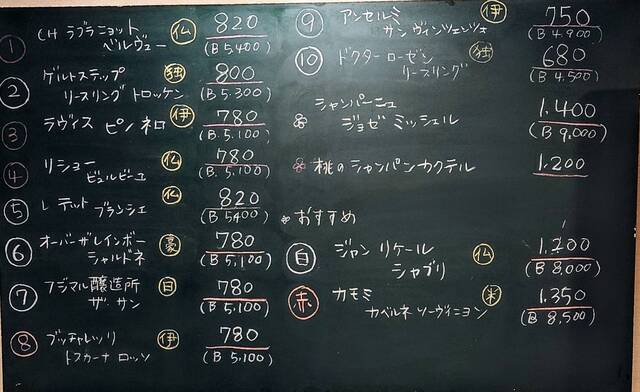 ① CH ラブラニョット 仏 820
ベルヴュー (B 5,400)
② ゲルトステップ 独 800
リースリング トロッケン (B 5,300)
③ ラヴィス ピノ ネロ 伊 780
(B 5,100)
④ リショー 仏 780
ピュルピーユ (B 5,100)
⑤ レ テット ブランシェ 仏 820
(B 5400)
⑥ オーバーザレインボー 豪 780
シャルドネ (B 5,100)
⑦ フジマル醸造所 日 780
ザ・サン (B 5,100)
⑧ ブッチャレッリ 伊 780
トスカーナ ロッソ (B 5,100)
⑨ アンセルミ 伊 750
サン ヴィンツェンツェ (B 4,900)
⑩ ドクターローゼン 独 680
リースリング (B 4,500)
シャンパーニュ 1.400
ジョゼ ミッシェル (B 9,000)
桃のシャンパンカクテル 1.200
おすすめ
白 ジャン リケール 仏 1,200
シャブリ (B 8,000)
赤 カモミ 米 1.350
カベルネ ソーヴィニヨン (B 8,500)